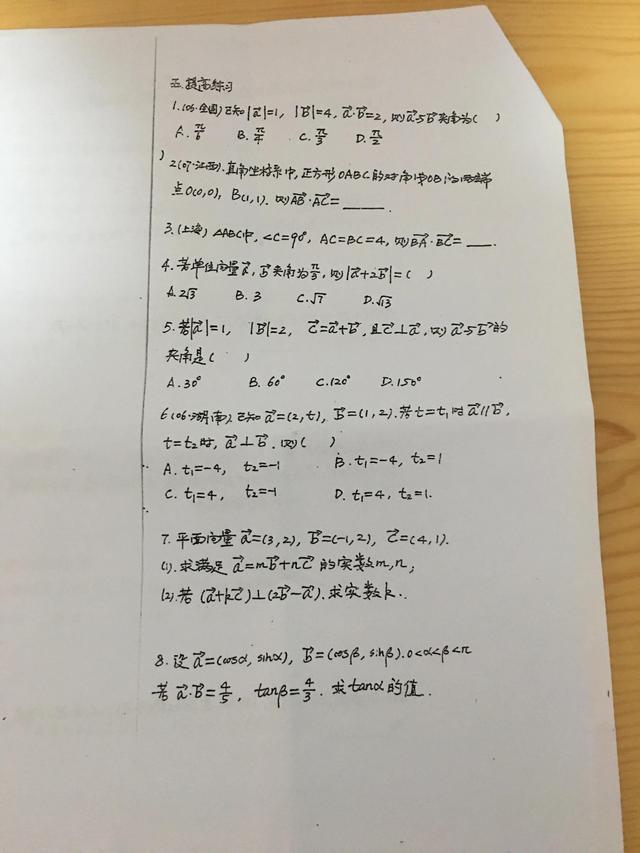 五.提高练习
1.(06·全国)已知|a⃗|=1, |b⃗|=4, a⃗·b⃗=2, 则a⃗与b⃗夹角为( )
A. π/6 B. π/4 C. π/3 D. π/2
)
2(07·江西).直角坐标系中,正方形OABC的对角线OB的两端
点O(0,0), B(1,1). 则AB⃗·AC⃗=____.
3.(上海) △ABC中, ∠C=90°, AC=BC=4, 则BA⃗·BC⃗=___.
4.若单位向量a⃗, b⃗夹角为π/3, 则|a⃗+2b⃗|=( )
A.2√3 B. 3 C.√7 D.√13
5.若|a⃗|=1, |b⃗|=2, c⃗=a⃗+b⃗,且c⃗⊥a⃗,则a⃗与b⃗的
夹角是( )
A.30° B. 60° C.120° D.150°
6(06·湖南).已知a⃗=(2,t), b⃗=(1,2).若t=t₁时a⃗//b⃗,
t=t₂时, a⃗⊥b⃗.则( )
A. t₁=-4, t₂=-1 B. t₁=-4, t₂=1
C. t₁=4, t₂=-1 D. t₁=4, t₂=1.
7.平面向量a⃗=(3,2), b⃗=(-1,2), c⃗=(4,1).
(1).求满足a⃗=mb⃗+nc⃗的实数m,n;
(2).若(a⃗+kc⃗)⊥(2b⃗-a⃗).求实数k.
8.设a⃗=(cosα, sinα), b⃗=(cosβ, sinβ).0<α<β<π
若a⃗·b⃗=4/5, tanβ=4/3. 求tanα的值.